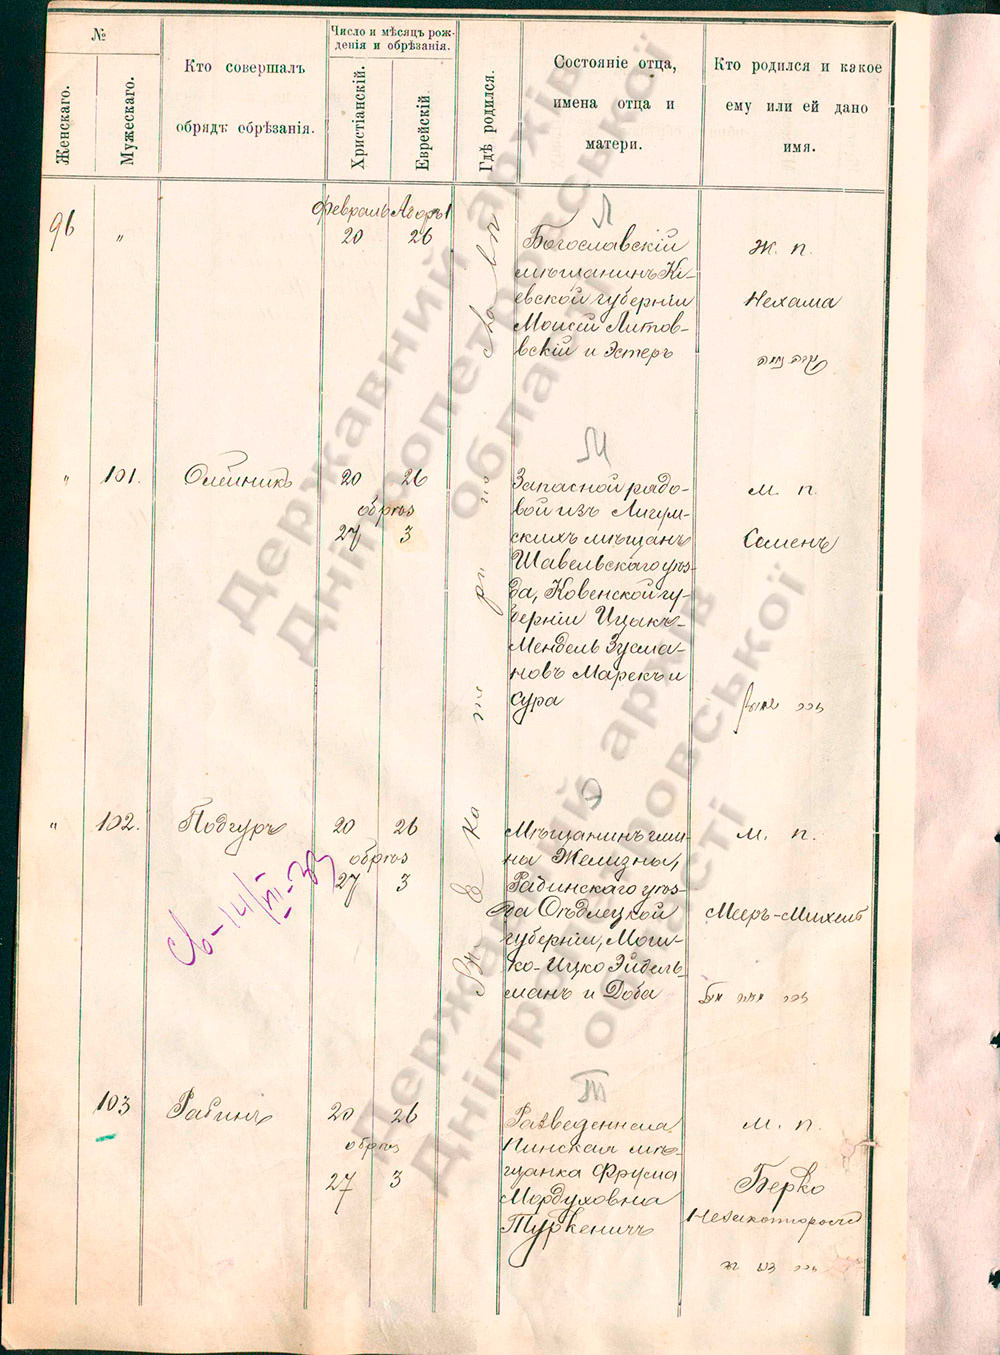 №
Женскаго.
Мужескаго.
Кто совершалъ
обрядъ обрѣзанія.
Число и мѣсяцъ рож-
денія и обрѣзанія.
Христіанскій.
Еврейскій
Гдѣ родился.
Состояніе отца,
имена отца и
матери.
Кто родился и какое
ему или ей дано
имя.
Въ Екатеринославѣ
96
"
Февраль
20
26
Л
Богославскій
мѣщанинъ Кі-
евской губерніи
Моисей Литов-
вскій и Эстеръ
ж. п.
Нехама
"
101.
Олейникъ
20
26
обрѣз
27
3
М
Запасной рядо-
вой изъ Лигум-
скихъ мѣщанъ
Шавельскаго уѣз-
да, Ковенской гу-
берніи Ицакъ-
Мендель Зусма-
новъ Марекъ и
Сура
м. п.
Семенъ
"
102.
Подгуръ
20
26
обрѣз
27
3
Э
Мѣщанинъ гми-
ны Желизны,
Радинскаго уѣз-
да Сѣдлецкой
губерніи, Мош-
ко-Ицко Эйдель-
манъ и Доба
м. п.
Мееръ-Михель
103
Рабинъ
20
26
обрѣз
27
3
Т
Разведенная
Пинская мѣ-
щанка Фрума
Мордуховна
Туркеничъ
м. п.
Берко
Державний архів
Дніпропетровської
області
Державний архів
Дніпропетровської
області